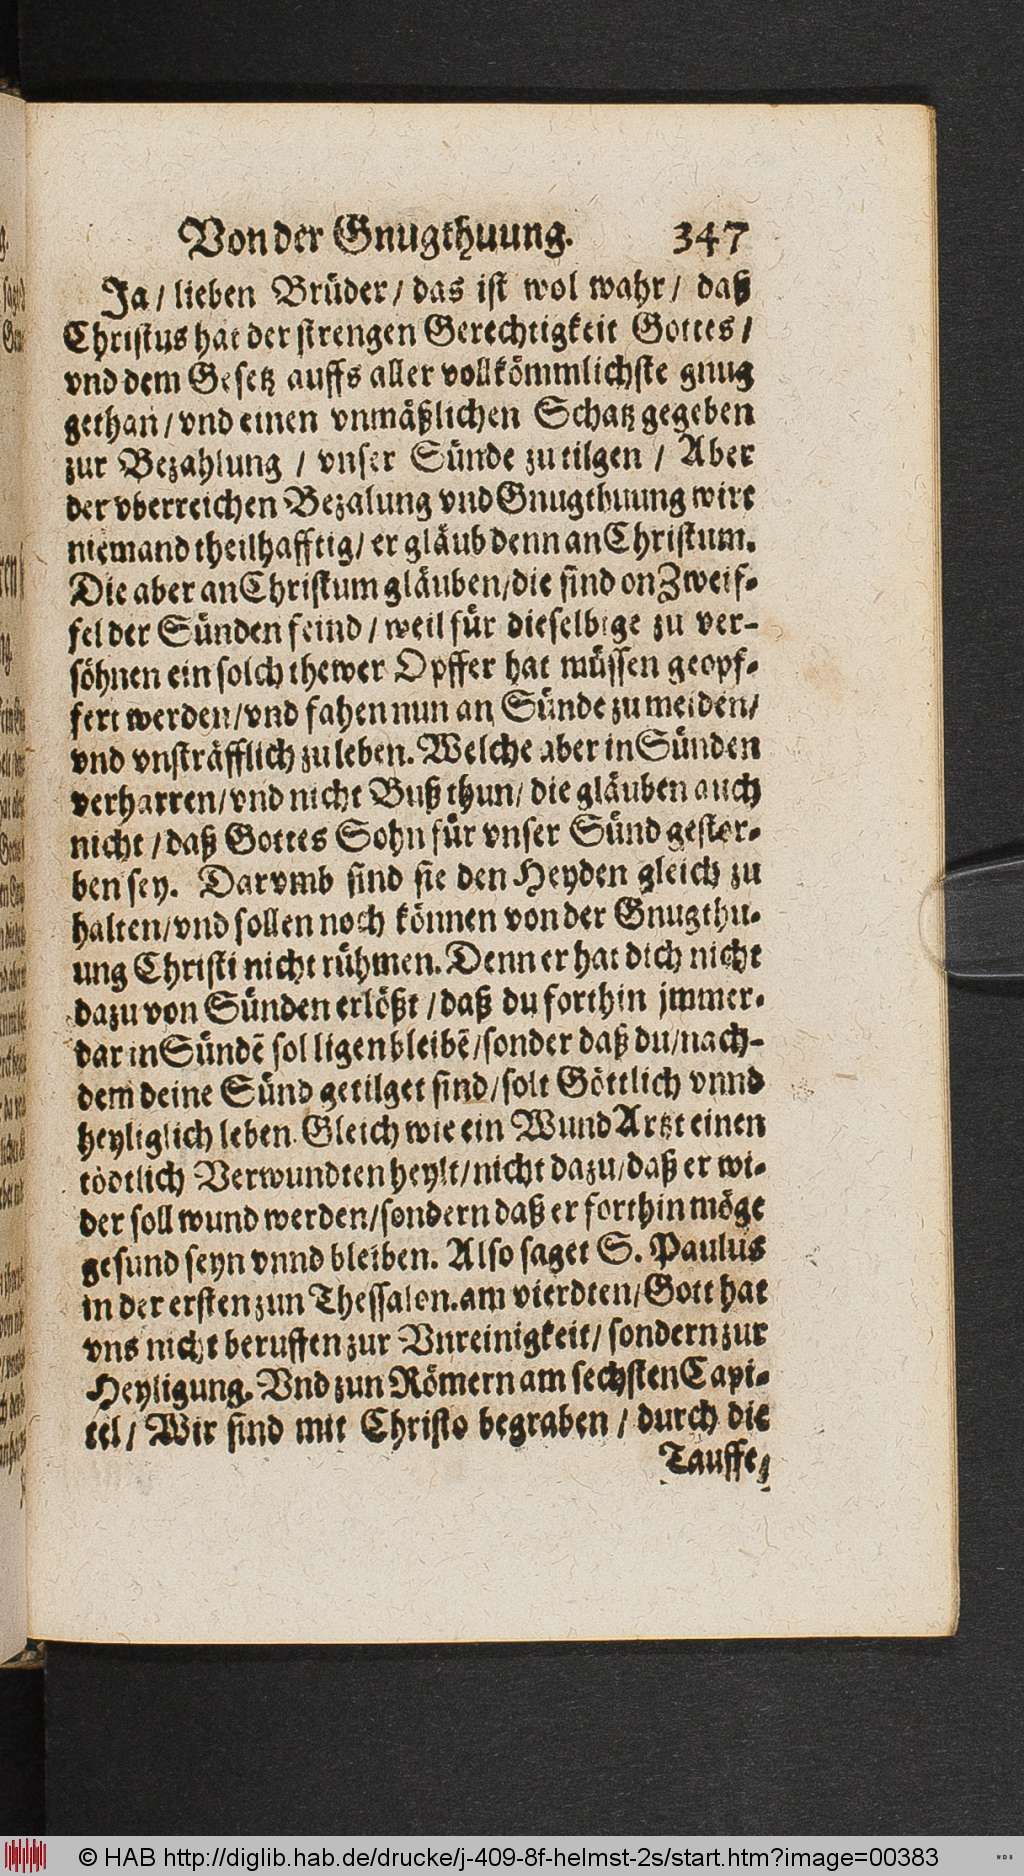 Von der Gnugthuung. 347
Ja / lieben Brüder / das ist wol wahr / daß
Christus hat der strengen Gerechtigkeit Gottes /
vnd dem Gesetz auffs aller vollkömmlichste gnug
gethan / vnd einen vnmäßlichen Schatz gegeben
zur Bezahlung / vnser Sünde zu tilgen / Aber
der vberreichen Bezalung vnd Gnugthuung wirt
niemand theilhafftig / er gläub denn an Christum.
Die aber an Christum gläuben / die sind on Zweif-
fel der Sünden feind / weil für dieselbige zu ver-
söhnen ein solch thewer Opffer hat müssen geopf-
fert werden / vnd fahen nun an Sünde zu meiden /
vnd vnsträfflich zu leben. Welche aber in Sünden
verharren / vnd nicht Buß thun / die gläuben auch
nicht / daß Gottes Sohn für vnser Sünd gestor-
ben sey. Darvmb sind sie den Heyden gleich zu
halten / vnd sollen noch können von der Gnugthu-
ung Christi nicht rühmen. Denn er hat dich nicht
dazu von Sünden erlößt / daß du forthin jmmer-
dar in Sündẽ solligen bleibẽ / sonder daß du / nach-
dem deine Sünd getilget sind / solt Göttlich vnnd
heyliglich leben. Gleich wie ein Wund Artzt einen
tödtlich Verwundten heylt / nicht dazu / daß er wi-
der soll wund werden / sondern daß er forthin möge
gesund seyn vnnd bleiben. Also saget S. Paulus
in der ersten zun Thessalon. am vierdten / Gott hat
vns nicht beruffen zur Vnreinigkeit / sondern zur
Heyligung. Vnd zun Römern am sechsten Capi-
tel / Wir sind mit Christo begraben / durch die
Tauffe /
© HAB http://diglib.hab.de/drucke/j-409-8f-helmst-2s/start.htm?image=00383